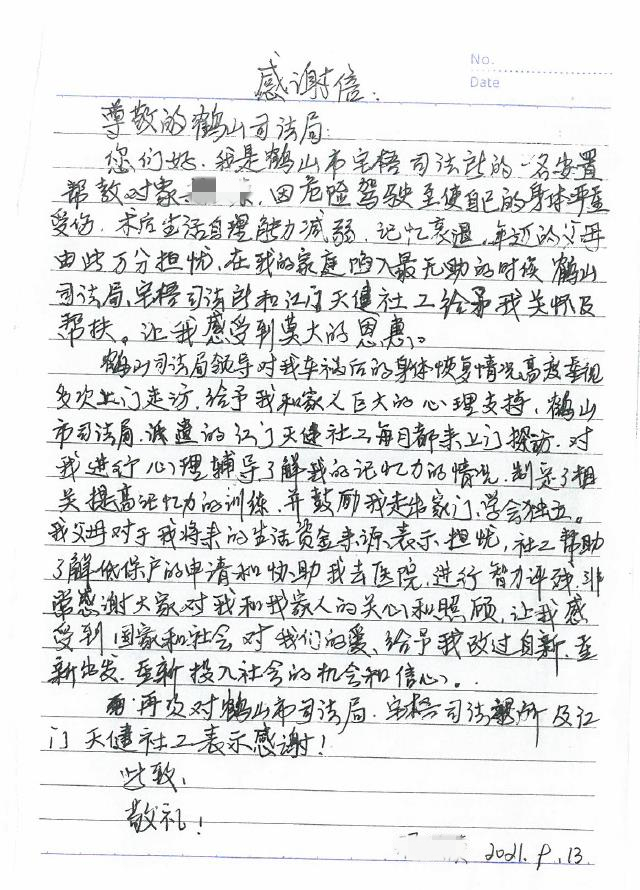 No.
Date
感谢信:
尊敬的鹤山司法局:
您们好.我是鹤山市宅梧司法所的一名安置
帮教对象,因危险驾驶至使自己的身体严重
受伤.术后生活自理能力减弱.记忆衰退.年迈的父母
由此万分担忧.在我的家庭陷入最无助的时候鹤山
司法局、宅梧司法所和江门天健社工给予我关怀及
帮扶。让我感受到莫大的恩惠。
鹤山司法局领导对我车祸后的身体恢复情况高度重视
多次上门走访.给予我和家人巨大的心理支持、鹤山
市司法局.派遣的江门天健社工每月都来上门探访.对
我进行心理辅导.了解我的记忆力的情况.制定了相
关提高记忆力的训练.并鼓励我走出家门、学会独立。
我父母对于我将来的生活资金来源.表示担忧,社工帮助
了解低保户的申请和协助我去医院.进行智力评残.非
常感谢大家对我和我家人的关心和照顾.让我感
受到国家和社会对我们的爱、给予我改过自新.重
新出发.重新投入社会的机会和信心。
再次对鹤山市司法局.宅梧司法所及江
门天健社工表示感谢!
此致,
敬礼!
2021.9.13